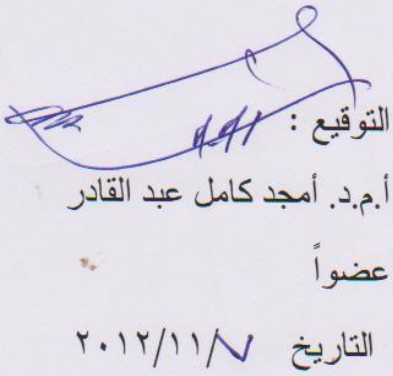 التوقيع :
أ.م.د. أمجد كامل عبد القادر
عضواً
التاريخ ٧/١١/٢٠١٢